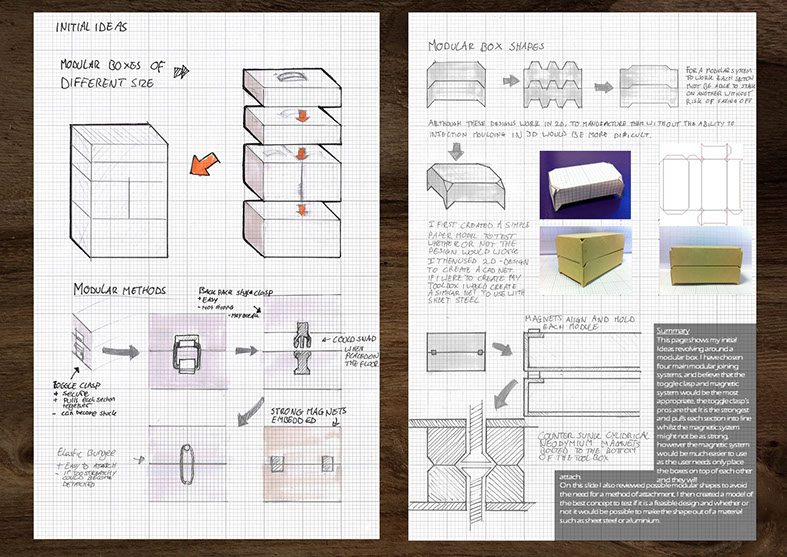 INITIAL IDEAS
MODULAR BOXES OF
DIFFERENT SIZE
MODULAR METHODS
BACK PACK STYLE CLASP
+ EASY
- NOT STRONG
- MAY BREAK
COULD SNAP
WHEN
PLACED ON
THE FLOOR
TOGGLE CLASP
+ SECURE
+ PULLS EACH SECTION
TOGETHER
- CAN BECOME STUCK
STRONG MAGNETS
EMBEDDED
Elastic Bungee
+ EASY TO ATTACH
- IF TOO STRETCHY
COULD BECOME
DETATCHED
MODULAR BOX SHAPES
FOR A MODULAR SYSTEM
TO WORK EACH SECTION
MUST BE ABLE TO STACK
ON ANOTHER WITHOUT
RISK OF FALLING OFF
ALTHOUGH THESE DESIGNS WORK IN 2D, TO MANUFACTURE THEM WITHOUT THE ABILITY TO
INJECTION MOULDING IN 3D WOULD BE MORE DIFFICULT.
I FIRST CREATED A SIMPLE
PAPER MODEL TO TEST
WHETHER OR NOT THE
DESIGN WOULD WORK
I THEN USED 2D-DESIGN
TO CREATE A CAD NET.
IF I WERE TO CREATE MY
TOOLBOX I WOULD CREATE
A SIMILAR NET TO USE WITH
SHEET STEEL
MAGNETS ALIGN AND HOLD
EACH MODULE
COUNTER SUNK CYLIDRICAL
NEODYMIUM MAGNETS
BOLTED TO THE BOTTOM
OF THE TOOL BOX
Summary
This page shows my initial
Ideas revolving around a
modular box. I have chosen
four main modular joining
systems, and believe that the
toggle clasp and magnetic
system would be the most
appropriate, the toggle clasp's
pros are that it is the strongest
and pulls each section into line
whilst the magnetic system
might not be as strong,
however the magnetic system
would be much easier to use
as the user needs only place
the boxes on top of each other
and they will
attach.
On this slide I also reviewed possible modular shapes to avoid
the need for a method of attachment, I then created a model of
the best concept to test if it is a feasible design and whether or
not it would be possible to make the shape out of a material
such as sheet steel or aluminium.